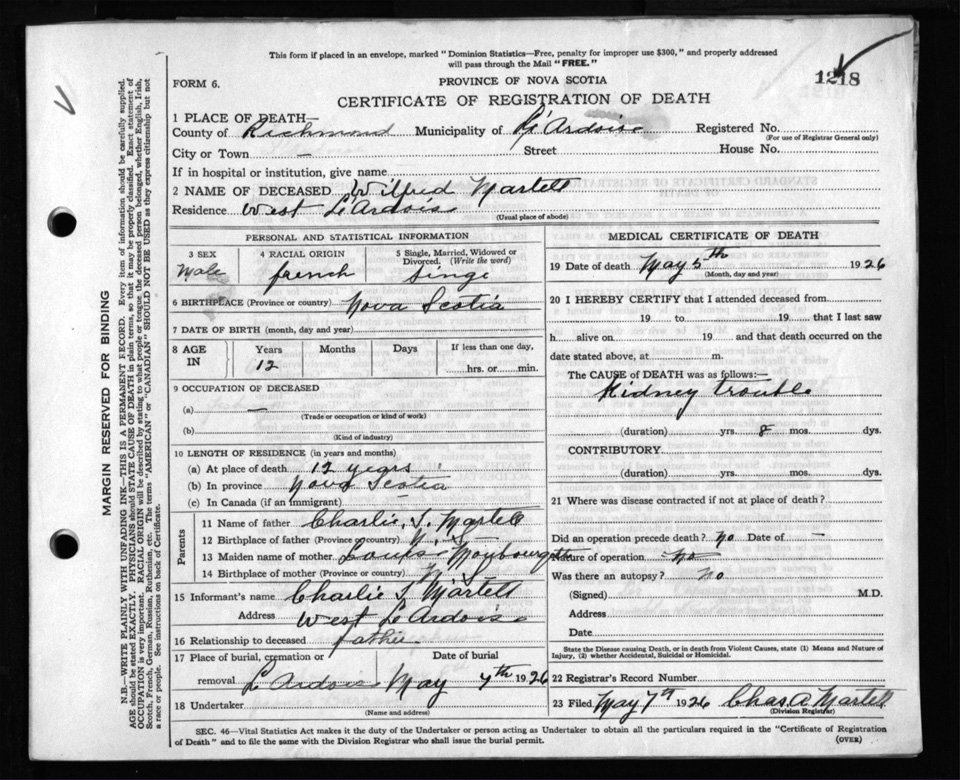 This form if placed in an envelope, marked "Dominion Statistics—Free, penalty for improper use $300," and properly addressed
will pass through the Mail "FREE."
FORM 6.
PROVINCE OF NOVA SCOTIA
1218
CERTIFICATE OF REGISTRATION OF DEATH
1 PLACE OF DEATH—
County of Richmond Municipality of L'Ardoise Registered No.
(For use of Registrar General only)
City or Town — Street House No.
If in hospital or institution, give name
2 NAME OF DECEASED Wilfred Martell
Residence West L'Ardois
(Usual place of abode)
PERSONAL AND STATISTICAL INFORMATION
3 SEX
Male
4 RACIAL ORIGIN
french
5 Single, Married, Widowed or
Divorced. (Write the word)
Singe
6 BIRTHPLACE (Province or country) Nova Scotia
7 DATE OF BIRTH (month, day and year)
8 AGE
IN
Years
12
Months
Days
If less than one day,
hrs. or min.
9 OCCUPATION OF DECEASED
(a) —
(Trade or occupation or kind of work)
(b)
(Kind of industry)
10 LENGTH OF RESIDENCE (in years and months)
(a) At place of death 12 years
(b) In province Nova Scotia
(c) In Canada (if an immigrant) —
Parents
11 Name of father Charlie. S. Martell
12 Birthplace of father (Province or country) N. S
13 Maiden name of mother
14 Birthplace of mother (Province or country) N. S
15 Informant's name Charlie S Martell
Address West L'Ardois
16 Relationship to deceased father
17 Place of burial, cremation or
removal L'Ardois
Date of burial
May 7th 1926
18 Undertaker
(Name and address)
MEDICAL CERTIFICATE OF DEATH
19 Date of death May 5th 1926
(Month, day and year)
20 I HEREBY CERTIFY that I attended deceased from
19 to 19 that I last saw
h alive on 19 and that death occurred on the
date stated above, at m.
The CAUSE of DEATH was as follows:—
Kidney trouble
(duration) yrs. 8 mos. dys.
CONTRIBUTORY
(duration) yrs. mos. dys.
21 Where was disease contracted if not at place of death?
Did an operation precede death? no Date of —
Nature of operation no
Was there an autopsy? no
(Signed) M.D.
Address
Date
State the Disease causing Death, or in death from Violent Causes, state (1) Means and Nature of
Injury, (2) whether Accidental, Suicidal or Homicidal.
22 Registrar's Record Number
23 Filed May 7th 1926 Chas. A Martell
(Division Registrar)
SEC. 46—Vital Statistics Act makes it the duty of the Undertaker or person acting as Undertaker to obtain all the particulars required in the "Certificate of Registration
of Death" and to file the same with the Division Registrar who shall issue the burial permit.
(OVER)
MARGIN RESERVED FOR BINDING
N.B.—WRITE PLAINLY WITH UNFADING INK—THIS IS A PERMANENT RECORD. Every item of information should be carefully supplied.
AGE should be stated EXACTLY. PHYSICIANS should STATE CAUSE OF DEATH in plain terms, so that it may be properly classified. Exact statement of
OCCUPATION is very important. RACIAL ORIGIN will be described by stating to what people or tongue, the deceased person belonged, whether English, Irish,
Scotch, French, German, Russian, Ruthenian, etc. The terms "AMERICAN" or "CANADIAN" SHOULD NOT BE USED as they express citizenship but not
a race or people. See instructions on back of Certificate.